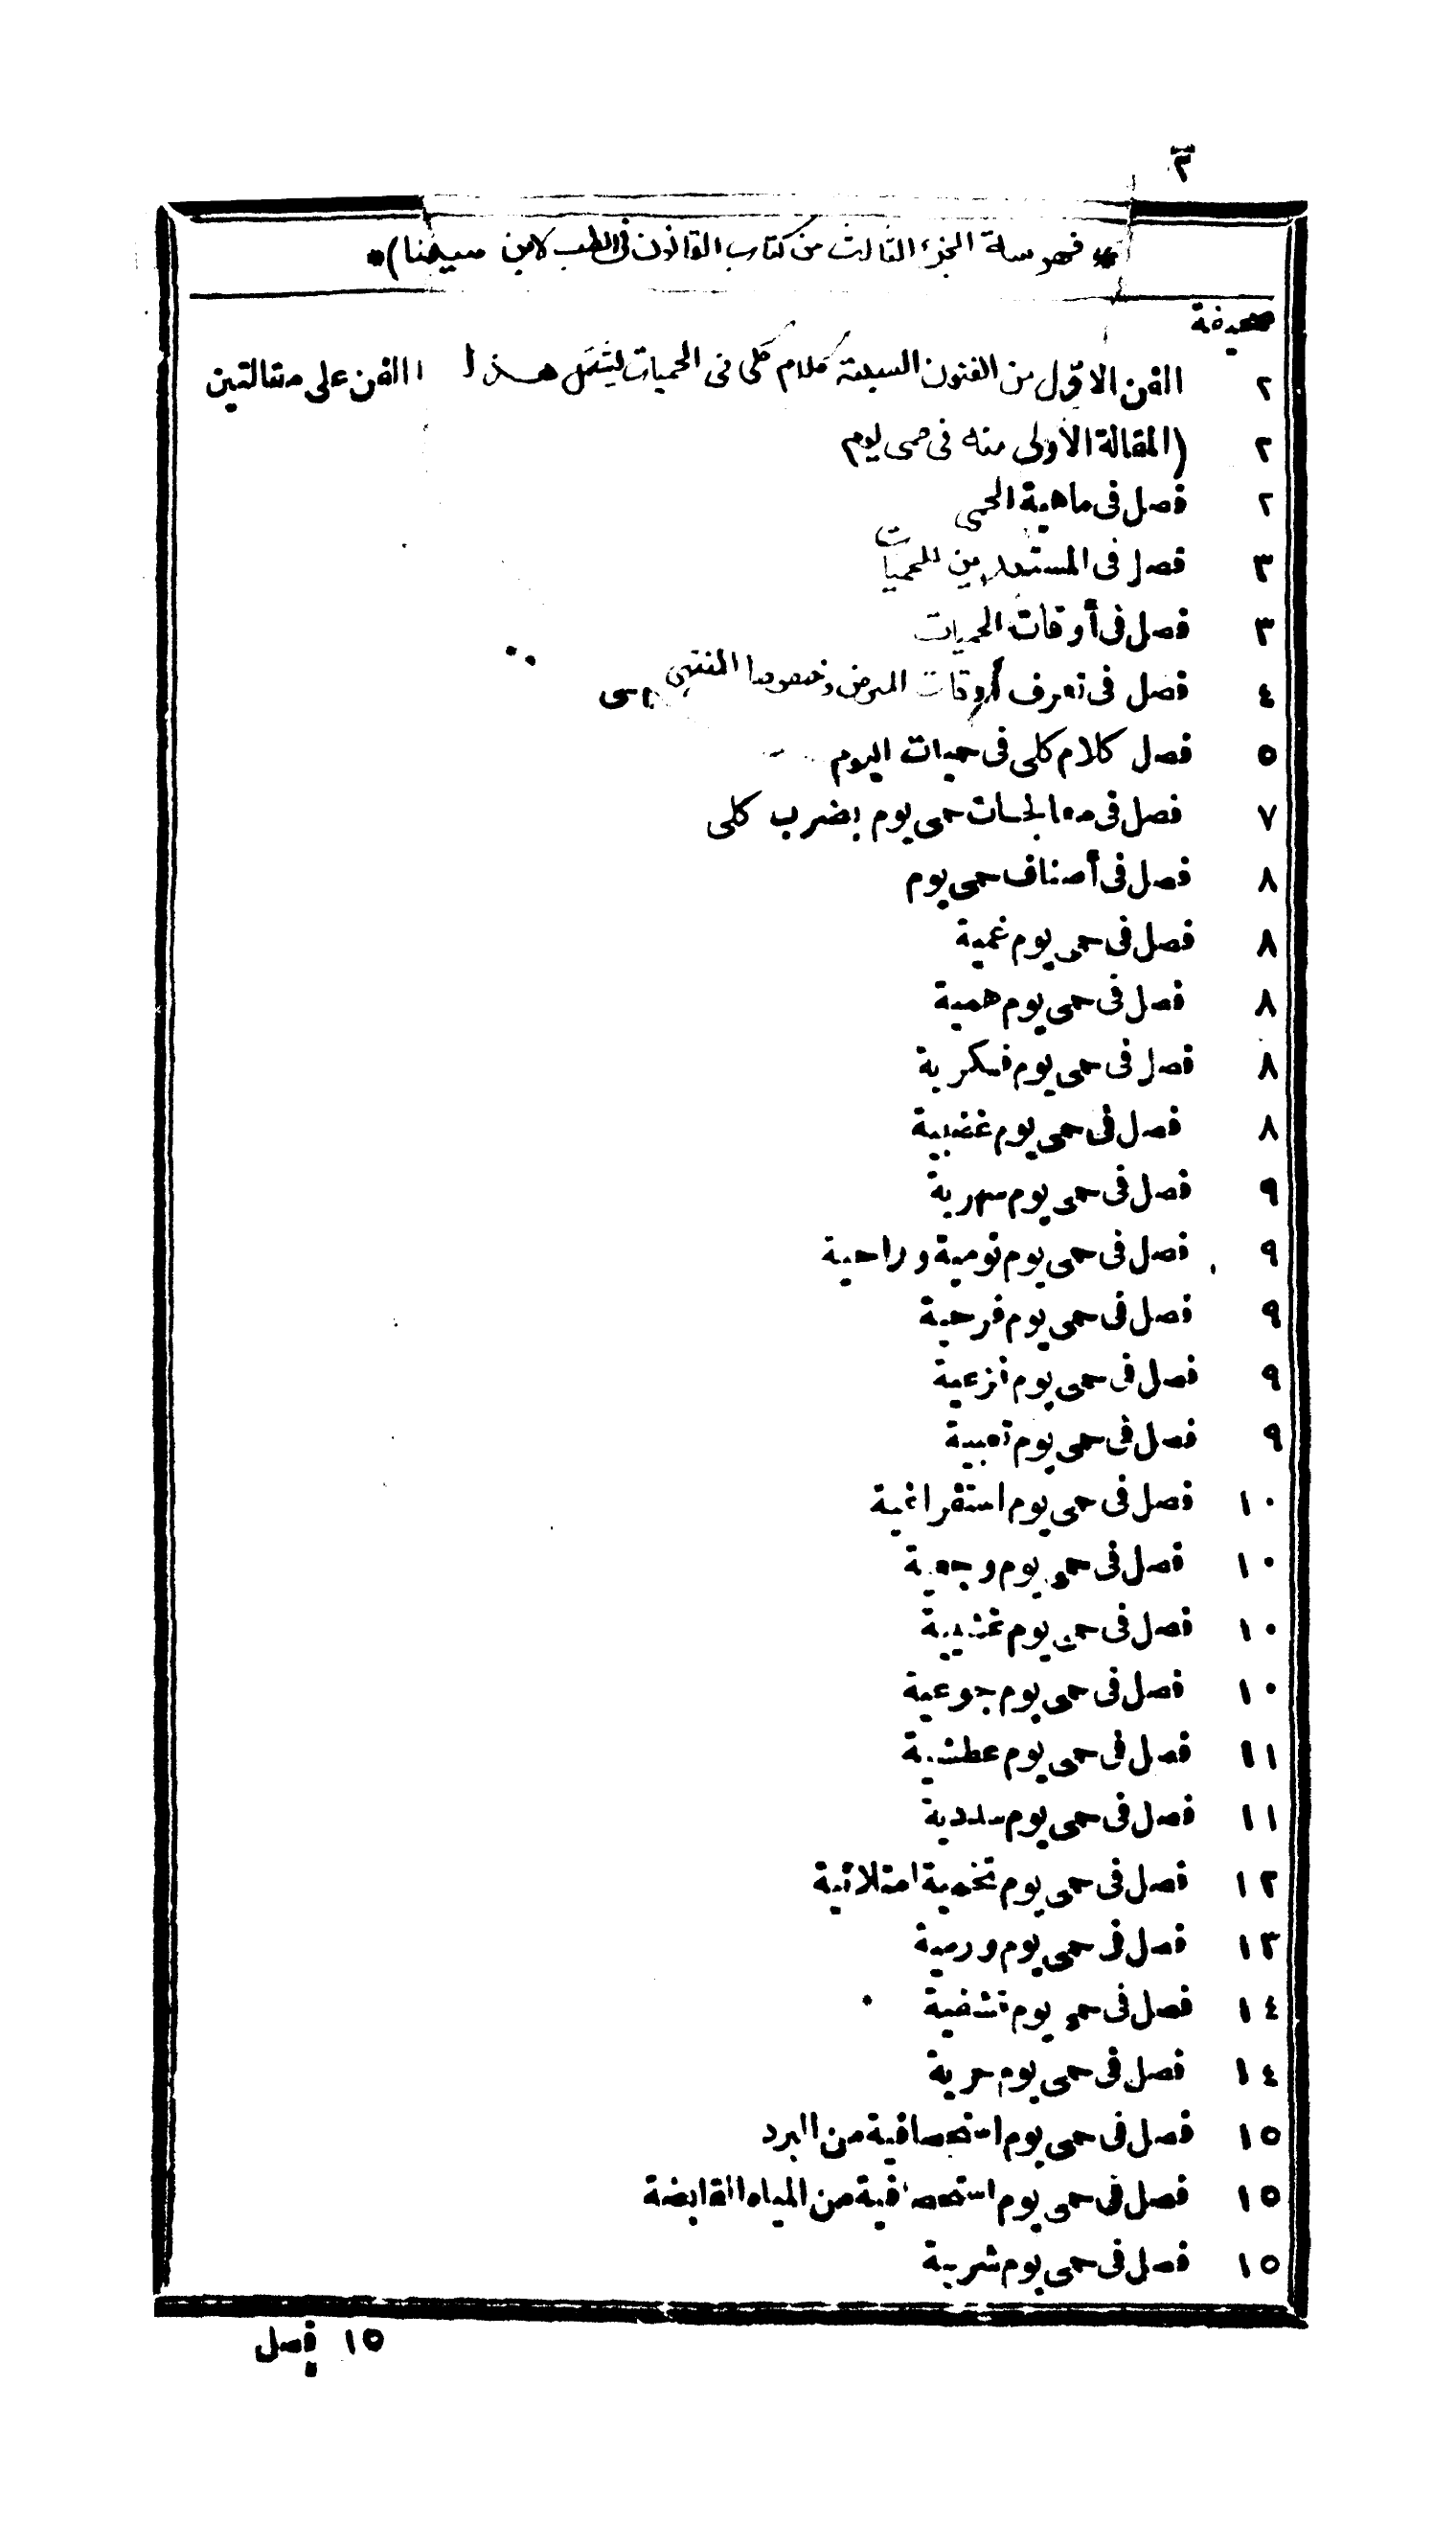 ٢
* فهرسة الجزء الثالث من كتاب القانون فى الطب لابن سينا)*
صحيفة
٢ الفن الاول من الفنون السبعة كلام كلى فى الحميات يشتمل هذا الفن على مقالتين
٢ (المقالة الأولى منه فى حمى يوم
٢ فصل فى ماهية الحمى
٣ فصل فى المستعدين للحميات
٣ فصل فى أوقات الحميات
٤ فصل فى تعرف أوقات المرض وخصوصا المنتهى
٥ فصل كلام كلى فى حميات اليوم
٧ فصل فى معالجات حمى يوم بضرب كلى
٨ فصل فى أصناف حمى يوم
٨ فصل فى حمى يوم غمية
٨ فصل فى حمى يوم همية
٨ فصل فى حمى يوم فكرية
٨ فصل فى حمى يوم غضبية
٩ فصل فى حمى يوم سهرية
٩ فصل فى حمى يوم نومية وراحية
٩ فصل فى حمى يوم فرحية
٩ فصل فى حمى يوم فزعية
٩ فصل فى حمى يوم تعبية
١٠ فصل فى حمى يوم استفراغية
١٠ فصل فى حمى يوم وجعية
١٠ فصل فى حمى يوم غشيية
١٠ فصل فى حمى يوم جوعية
١١ فصل فى حمى يوم عطشية
١١ فصل فى حمى يوم سددية
١٢ فصل فى حمى يوم تخمية امتلائية
١٣ فصل فى حمى يوم ورمية
١٤ فصل فى حمى يوم قشفية
١٤ فصل فى حمى يوم حرية
١٥ فصل فى حمى يوم استحصافية من البرد
١٥ فصل فى حمى يوم استحصافية من المياه القابضة
١٥ فصل فى حمى يوم شربية
١٥ فصل